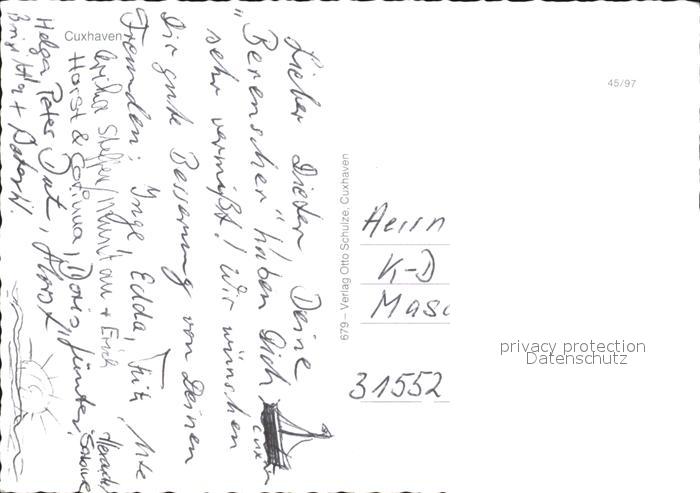 Cuxhaven
Lieber Dieter, Deine
"Berenscher" haben Dich
sehr vermißt! Wir wünschen
Dir gute Besserung von Deinen
Freunden: Inge, Edda, Fritz, Ute
Erika Steffen, + Erich
Horst & Corinna, Doris, Günter,
Helga, Peter, Horst,
Brigitta +
Cux
679 – Verlag Otto Schulze, Cuxhaven
45/97
Herrn
K-D
Masc
31552
privacy protection
Datenschutz